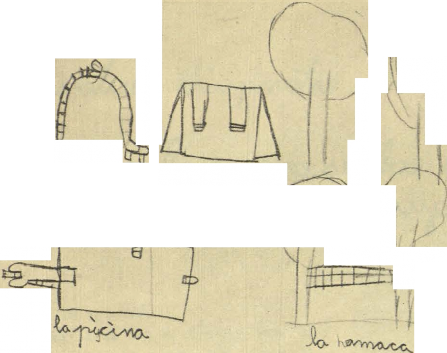 la piscina
la hamaca